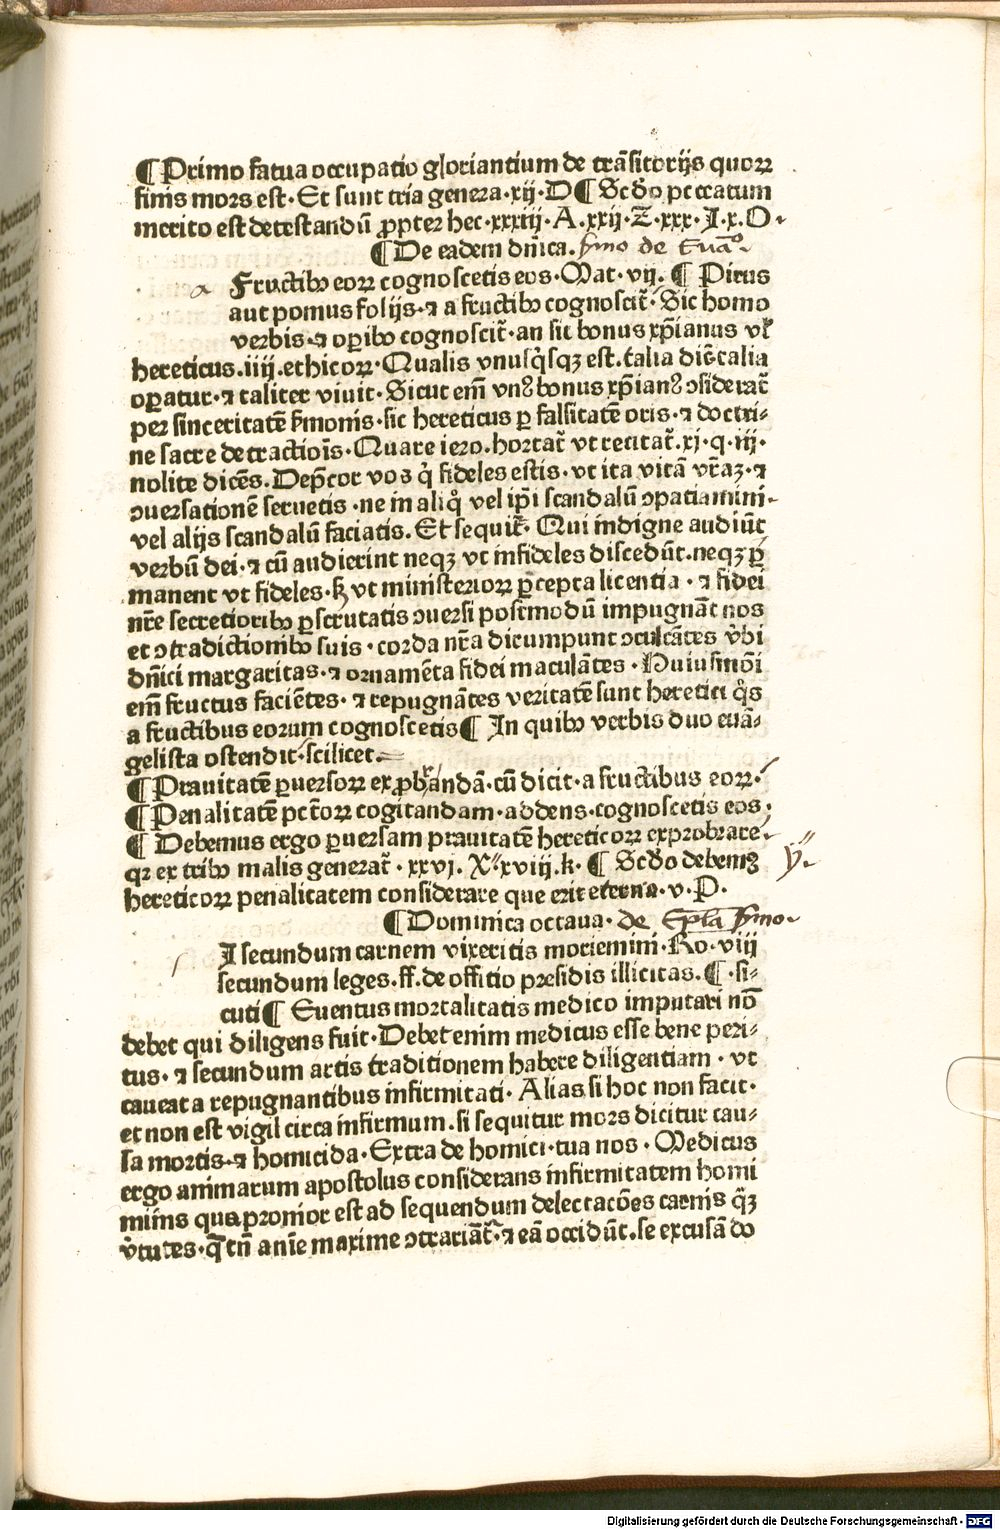 ¶Primo fatua occupatio gloriantium de trāsitorijs quoꝝ
finis mors est· Et sunt tria genera·xij·D¶ Scđo peccatum
merito est detestandū ꝓpter hec·xxxiij·A·xxij·Z·xxx·I·x·O·
¶De eadem dn̄ica. smo de Eua°·
a Fructibꝰ eoꝝ cognoscetis eos·Mat·vij·¶ Pirus
aut pomus folijs·⁊ a fructibꝰ cognoscit᷑·Sic homo
verbis·⁊ oꝑibꝰ cognoscit᷑·an sit bonus xp̄ianus vl᷑
hereticus.iiij.ethicoꝝ·Qualis vnusq̉sqꝫ est.talia dic̄·talia
oꝑatur·⁊ taliter viuit·Sicut em̄ vnꝰ bonus xp̄ianꝰ ↄsiderat᷑
per sinceritatē s̄monis·sic hereticus ꝑ falsitatē oris·⁊ doctri-
ne sacre detractiōis·Quare iero.hortat᷑ vt recitat᷑.xj·q·iij·
nolite dicēs.Dep̄cor vos q̉ fideles estis·vt ita vitā vr̄aꝫ·⁊
ↄuersationē seruetis·ne in aliq̊ vel ip̄i scandalū ↄpatiamini·
vel alijs scandalū faciatis. Et sequit᷑· Qui indigne audiūt
verbū dei·⁊ cū audierint neqꝫ vt infideles discedūt·neqꝫ ꝑ
manent vt fideles·sꝫ vt ministerioꝝ p̄cepta licentia·⁊ fidei
nr̄e secretioribꝰ ꝑscrutatis ↄuersi postmodū impugnāt nos
et ↄtradictionibꝰ suis·corda nr̄a dicumpunt ↄculcātes v̉bi
dn̄ici margaritas·⁊ ornamēta fidei maculātes·Huiusmōi
em̄ fructus faciētes·⁊ repugnātes veritatē sunt heretici q̊s
a fructibus eorum cognoscetis¶ In quibꝰ verbis duo euā-
gelista ostendit·scilicet.
¶Prauitatē ꝑuersoꝝ exꝓbrandā·cū dicit·a fructibus eoꝝ·
¶Penalitatē pctōꝝ cogitandam·addens·cognoscetis eos·
¶ Debemus ergo ꝑuersam prauitatē hereticoꝝ exprobrare·
qꝛ ex tribꝰ malis generat᷑·xxvj·X·xviij.k·¶ Scđo debemꝰ y·
hereticoꝝ penalitatem considerare que erit eterna·v·P·
¶Dominica octaua· de Ep̄la smo·
I secundum carnem vixeritis moriemini·Ro·viij
secundum leges.ff.de offitio presidis illicitas.¶·si-
cuti¶ Euentus mortalitatis medico imputari nō
debet qui diligens fuit·Debet enim medicus esse bene peri-
tus·⁊ secundum artis traditionem habere diligentiam·vt
caueat a repugnantibus infirmitati· Alias si hoc non facit·
et non est vigil circa infirmum.si sequitur mors dicitur cau-
sa mortis·⁊ homicida·Extra de homici·tua nos·Medicus
ergo animarum apostolus considerans infirmitatem homi
minis qua pronior est ad sequendum delectacōes carnis q̄ꝫ
v̉tutes·q̄ tn̄ anīe maxime ↄtrariāt᷑·⁊ eā occidūt.se excusādo
Digitalisierung gefördert durch die Deutsche Forschungsgemeinschaft · DFG